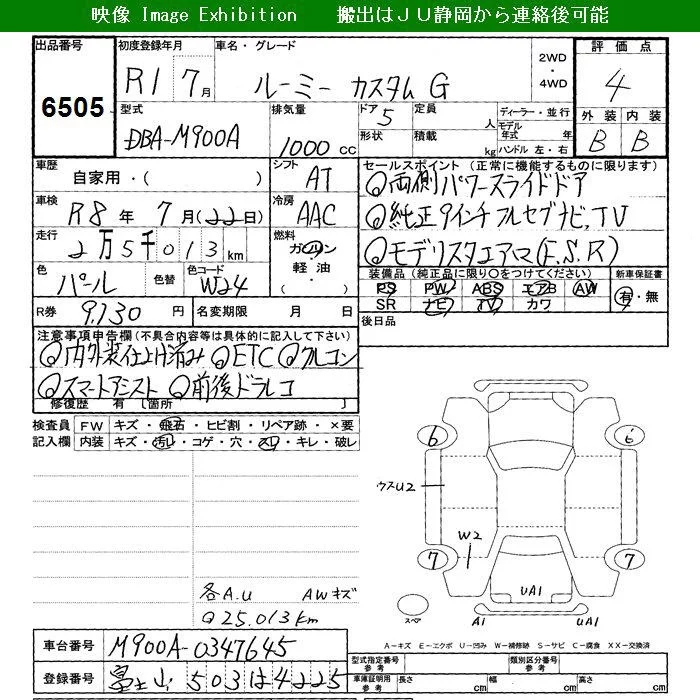 映像 Image Exhibition 搬出はJU静岡から連絡後可能
出品番号 初度登録年月 車名・グレード 評価点
6505 R1 7月 ルーミー カスタム G 2WD・4WD 4
型式 排気量 ドア 5 定員 人 ディーラー・並行 外装 内装
DBA-M900A 1000cc 形状 積載 kg モデル年式 年 ハンドル 左・右 B B
車歴 シフト セールスポイント（正常に機能するものに限ります）
自家用・( ) AT ◎両側パワースライドドア
車検 R8年 7月(22日) 冷房 AAC ◎純正9インチフルセグナビ,TV
走行 2万5千013km 燃料 ガソリン・軽油・ ◎モデリスタエアロ(F.S.R)
色 パール 色替 色コード W24 装備品（純正品に限り○をつけてください） 新車保証書
PS PW ABS エアB AW 有・無
SR ナビ カワ
R券 9,130円 名変期限 月 日 後日品
注意事項申告欄（不具合内容等は具体的に記入して下さい）
◎内外装仕上げ済み ◎ETC ◎クルコン
◎スマートアシスト ◎前後ドラレコ
修復歴 有 [箇所 ]
検査員 FW キズ・飛石・ヒビ割・リペア跡・×要
記入欄 内装 キズ・汚レ・コゲ・穴・スレ・キレ・破レ
6 6
ウスU2
W2
7 7
UA1
スペア A1 UA1
各A.U AWキズ
Q25.013km
A-キズ E-エクボ U-凹み W-補修跡 S-サビ C-腐食 XX-交換済
車台番号 M900A-0347645
型式指定番号 参考 類別区分番号 参考
登録番号 富士山 503は4225
車庫証明用 参考 長さ cm 幅 cm 高さ cm